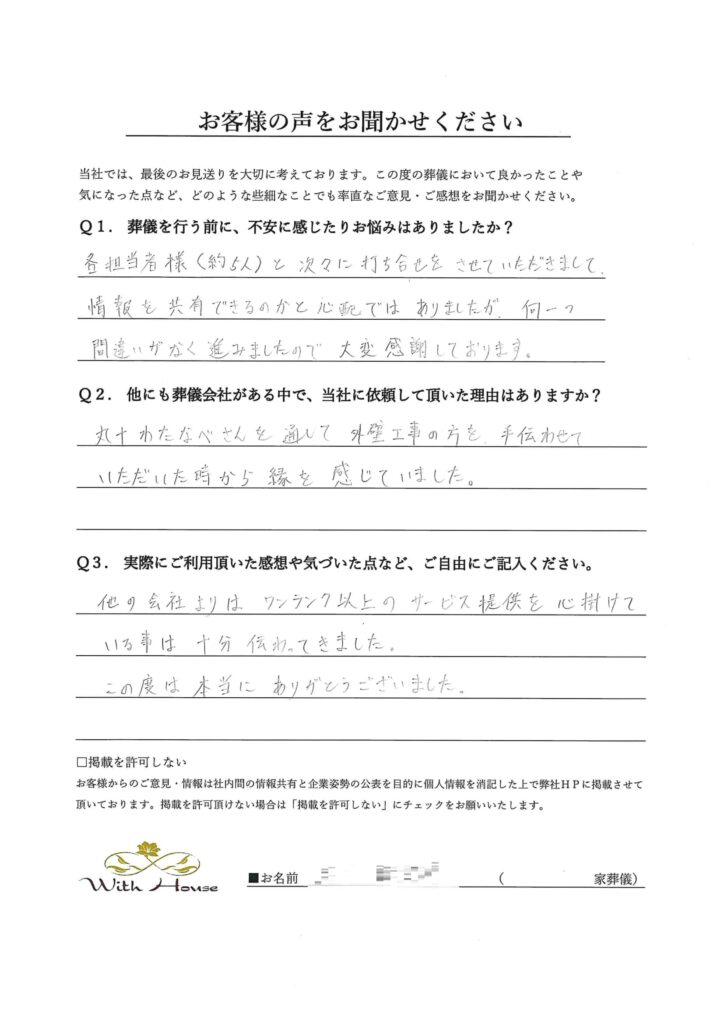 お客様の声をお聞かせください
当社では、最後のお見送りを大切に考えております。この度の葬儀において良かったことや
気になった点など、どのような些細なことでも率直なご意見・ご感想をお聞かせください。
Q１． 葬儀を行う前に、不安に感じたりお悩みはありましたか？
各担当者様（約5人）と次々に打ち合せをさせていただきまして、
情報を共有できるのかと心配ではありましたが、何一つ
間違いがなく進みましたので 大変感謝しております。
Q２． 他にも葬儀会社がある中で、当社に依頼して頂いた理由はありますか？
丸十わたなべさんを通して外壁工事の方を、手伝わせて
いただいた時から縁を感じていました。
Q３． 実際にご利用頂いた感想や気づいた点など、ご自由にご記入ください。
他の会社よりはワンランク以上のサービス提供を心掛けて
いる事は十分伝わってきました。
この度は本当にありがとうございました。
□掲載を許可しない
お客様からのご意見・情報は社内間の情報共有と企業姿勢の公表を目的に個人情報を消記した上で弊社ＨＰに掲載させて
頂いております。掲載を許可頂けない場合は「掲載を許可しない」にチェックをお願いいたします。
With House
■お名前 （ 家葬儀）